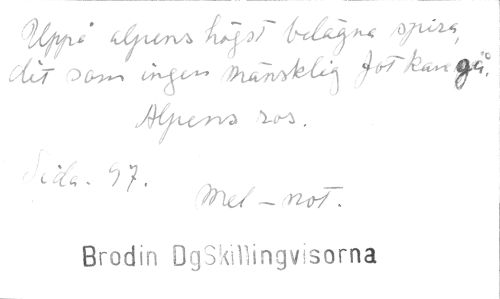 Uppå alpens högst belägna spira,
dit som ingen mänsklig fot kan gå.
Alpens ros.
Sida. 97.
Mel - not.
Brodin DgSkillingvisorna